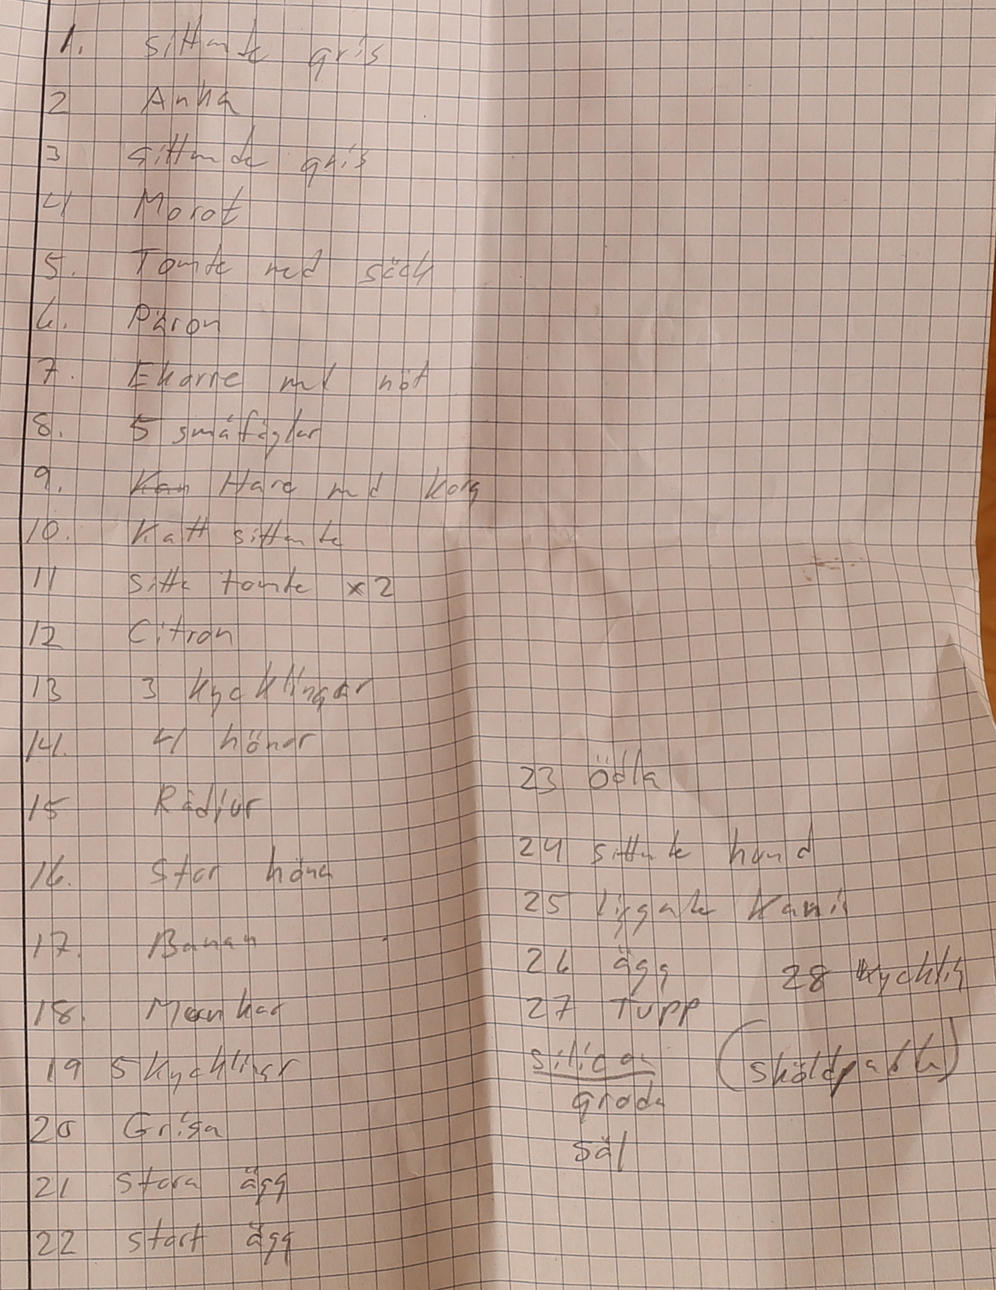 1. sittande gris
2 Anka
3 sittande gris
4 Morot
5. Tomte med säck
6. Päron
7. Ekorre med nöt
8. 5 småfåglar
9. Kan Hare med korg
10. Katt sittande
11 sitte tomte x2
12 Citron
13 3 kycklingar
14. 4 hönor
15 Rådjur
16. Stor höna
17. Banan
18. Munkar
19 5 kycklingar
20 Grisa
21 stora ägg
22 stort ägg
23 ödla
24 sittande hund
25 liggande kanin
26 ägg
27 Tupp
28 kyckling
silicon
(sköldpadda)
groda
säl